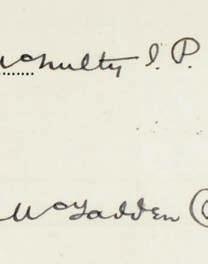 McNulty I. P.
McFadden